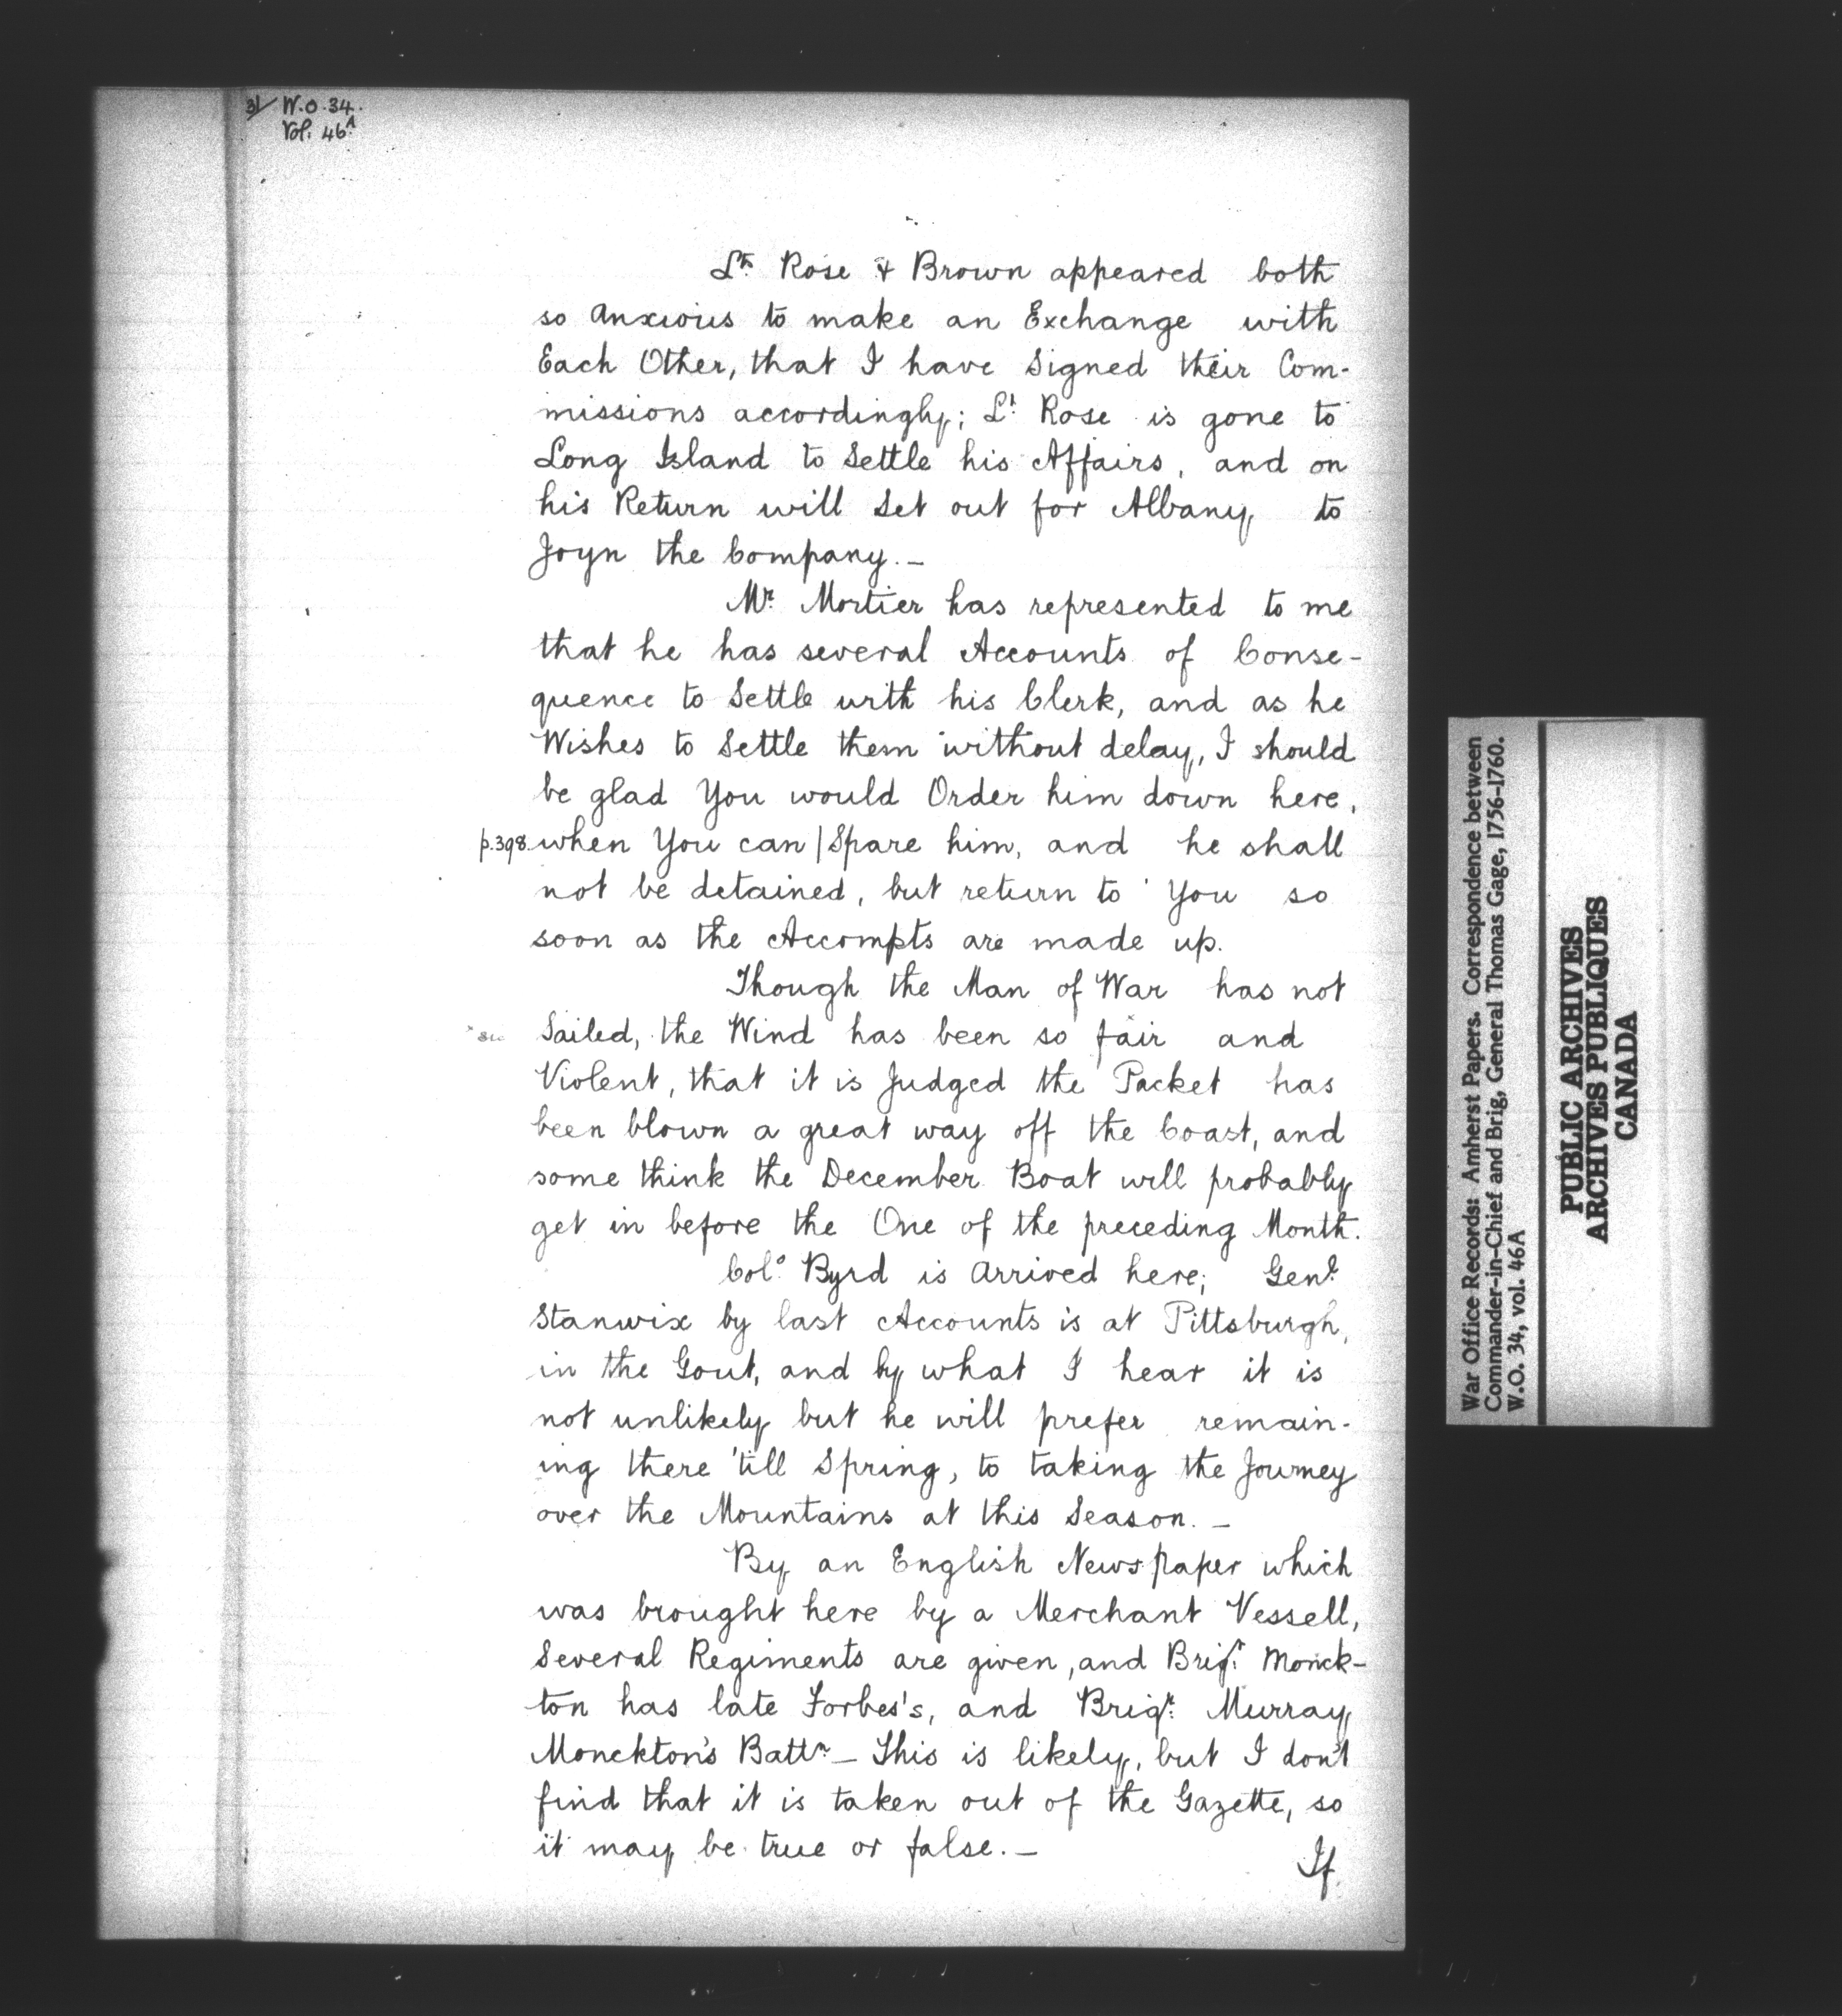 31/ W.O. 34.
Vol: 46A
Lts Rose & Brown appeared both
so anxious to make an Exchange with
Each Other, that I have Signed their Com-
missions accordingly; Lt. Rose is gone to
Long Island to Settle his Affairs, and on
his Return will Set out for Albany to
Joyn the Company. —
Mr. Mortier has represented to me
that he has several Accounts of Conse-
quence to Settle with his Clerk, and as he
Wishes to Settle them without delay, I should
be glad You would Order him down here,
p.398. when You can | Spare him, and he shall
not be detained, but return to You so
soon as the Accompts are made up.
Though the Man of War has not
sic Sailed, the Wind has been so fair and
Violent, that it is Judged the Packet has
been blown a great way off the Coast, and
some think the December Boat will probably
get in before the One of the preceding Month.
Colo. Byrd is arrived here; Genl.
Stanwix by last Accounts is at Pittsburgh,
in the Gout, and by what I hear it is
not unlikely but he will prefer remain-
ing there 'till Spring, to taking the Journey
over the Mountains at this Season. —
By an English Newspaper which
was brought here by a Merchant Vessell,
Several Regiments are given, and Brigr. Monck-
ton has late Forbes's, and Brigr. Murray
Monckton's Battn. — This is likely, but I don't
find that it is taken out of the Gazette, so
it may be true or false. —
If
War Office Records: Amherst Papers. Correspondence between
Commander-in-Chief and Brig, General Thomas Gage, 1756-1760.
W.O. 34, vol. 46A
PUBLIC ARCHIVES
ARCHIVES PUBLIQUES
CANADA